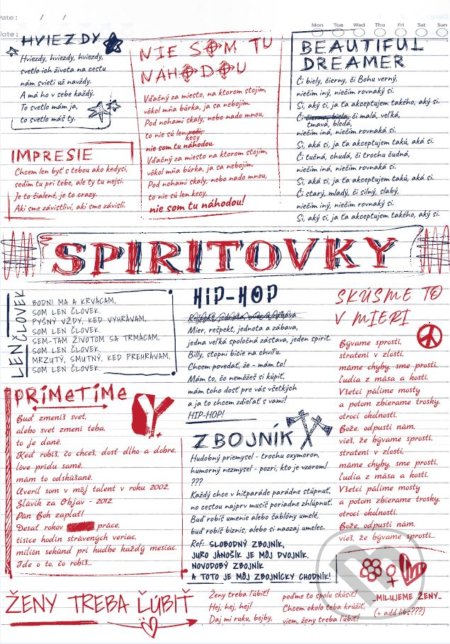 Date: / /
Date:
Mon Tue Wed Thu Fri Sat Sun
HVIEZDY
Hviezdy, hviezdy, hviezdy,
svetlo ich života na cestu
nám svieti už navždy.
A má ho v sebe každý.
To svetlo mám ja,
to svetlo máš ty.
NIE SOM TU
NÁHODOU
Vďačný za miesto, na ktorom stojím,
vôkol mňa búrka, ja sa nebojím.
Pod nohami skaly, nebo nado mnou,
to nie sú len
kecy
nie som tu náhodou!
Vďačný za miesto, na ktorom stojím,
vôkol mňa búrka, ja sa nebojím.
Pod nohami skaly, nebo nado mnou,
to nie sú len kecy,
nie som tu náhodou!
BEAUTIFUL
DREAMER
Či biely, čierny, či Bohu verný,
nietim iný, nietim rovnaký si.
Si, aký si, ja ťa akceptujem takého, aký si.
Či čierna, biela, či malá, veľká,
tmavá, bledá,
nietim iná, nietim rovnaká si.
Si, aká si, ja ťa akceptujem takú, aká si.
Či tučná, chudá, či trochu čudná,
nietim iná, nietim rovnaká si.
Si, aká si, ja ťa akceptujem takú, aká si.
Či starý, mladý, či silný, slabý,
nietim iný, nietim rovnaký si.
Si, aký si, ja ťa akceptujem takého, aký si.
IMPRESIE
Chcem len byť s tebou ako kedysi,
sedím tu pri tebe, ale ty tu nejsi.
Je to šialené, je to crazy.
Aki sme závistliví, aki sme závislí.
SPIRITOVKY
LEN ČLOVEK
BODNI MA A KRVÁCAM,
SOM LEN ČLOVEK.
PYŠNÝ VŽDY, KEĎ VYHRÁVAM,
SOM LEN ČLOVEK.
SEM-TAM ŽIVOTOM SA TRMÁCAM,
SOM LEN ČLOVEK.
MRZUTÝ, SMUTNÝ, KEĎ PREHRÁVAM,
SOM LEN ČLOVEK.
HIP-HOP
Mier, rešpekt, jednota a zábava,
jedna veľká spoločná zástava, jeden spirit.
Billy, stopni bicie na chvíľu.
Chcem povedať, že - mám to!
Mám to, čo nemôžeš si kúpiť,
mám toho dosť pre vás všetkých
a ja to chcem zdieľať s vami!
HIP-HOP!
SKÚSME TO
V MIERI
Bývame sprostí,
stratení v zlosti,
máme chyby, sme prostí.
Ľudia z mäsa a kostí.
Všetci pálime mosty
a potom zbierame trosky,
otroci okolností.
Bože, odpusti nám,
vieš, že bývame sprostí.
Bývame sprostí,
stratení v zlosti,
máme chyby, sme prostí.
Ľudia z mäsa a kostí.
Všetci pálime mosty
a potom zbierame trosky,
otroci okolností.
Bože, odpusti nám,
vieš, že bývame sprostí.
PRIMETIME
Buď zmeníš svet,
alebo svet zmení teba,
to je dané.
Keď robíš, čo chceš, dosť dlho a dobre,
love prídu samé,
mám to odskúšané.
Otvoril som v môj talent v roku 2002.
Slávik za Objav - 2012
na Pan Boh zaplať!
Desať rokov práce,
tisíce hodín strávených veriac,
milión sekúnd pri hudbe každý mesiac.
Ide o to, čo robíš...
ZBOJNÍK
Hudobný priemysel - trochu oxymoron,
humorný nezmysel - pozri, kto je vzorom!
???
Každý chce v hitparáde parádne stúpnuť,
no cestou najprv musíš poriadne zhlúpnuť.
Buď robíš umenie alebo šablóny umelé,
buď robíš biznis, alebo si naozaj umelec.
Ref.: SLOBODNÝ ZBOJNÍK,
JURO JÁNOŠÍK JE MÔJ DVOJNÍK,
NOVODOBÝ ZBOJNÍK
A TOTO JE MÔJ ZBOJNÍCKY CHODNÍK!
ŽENY TREBA ĽÚBIŤ
Ženy treba ľúbiť!
Hoj, hoj, hoj!
Daj mi ruku, bejby,
poďme to spolu skúsiť!
Chcem okolo teba krúžiť,
viem, ženy treba ľúbiť!
MILUJEME ŽENY...
(+ add libs???)
M
martinus